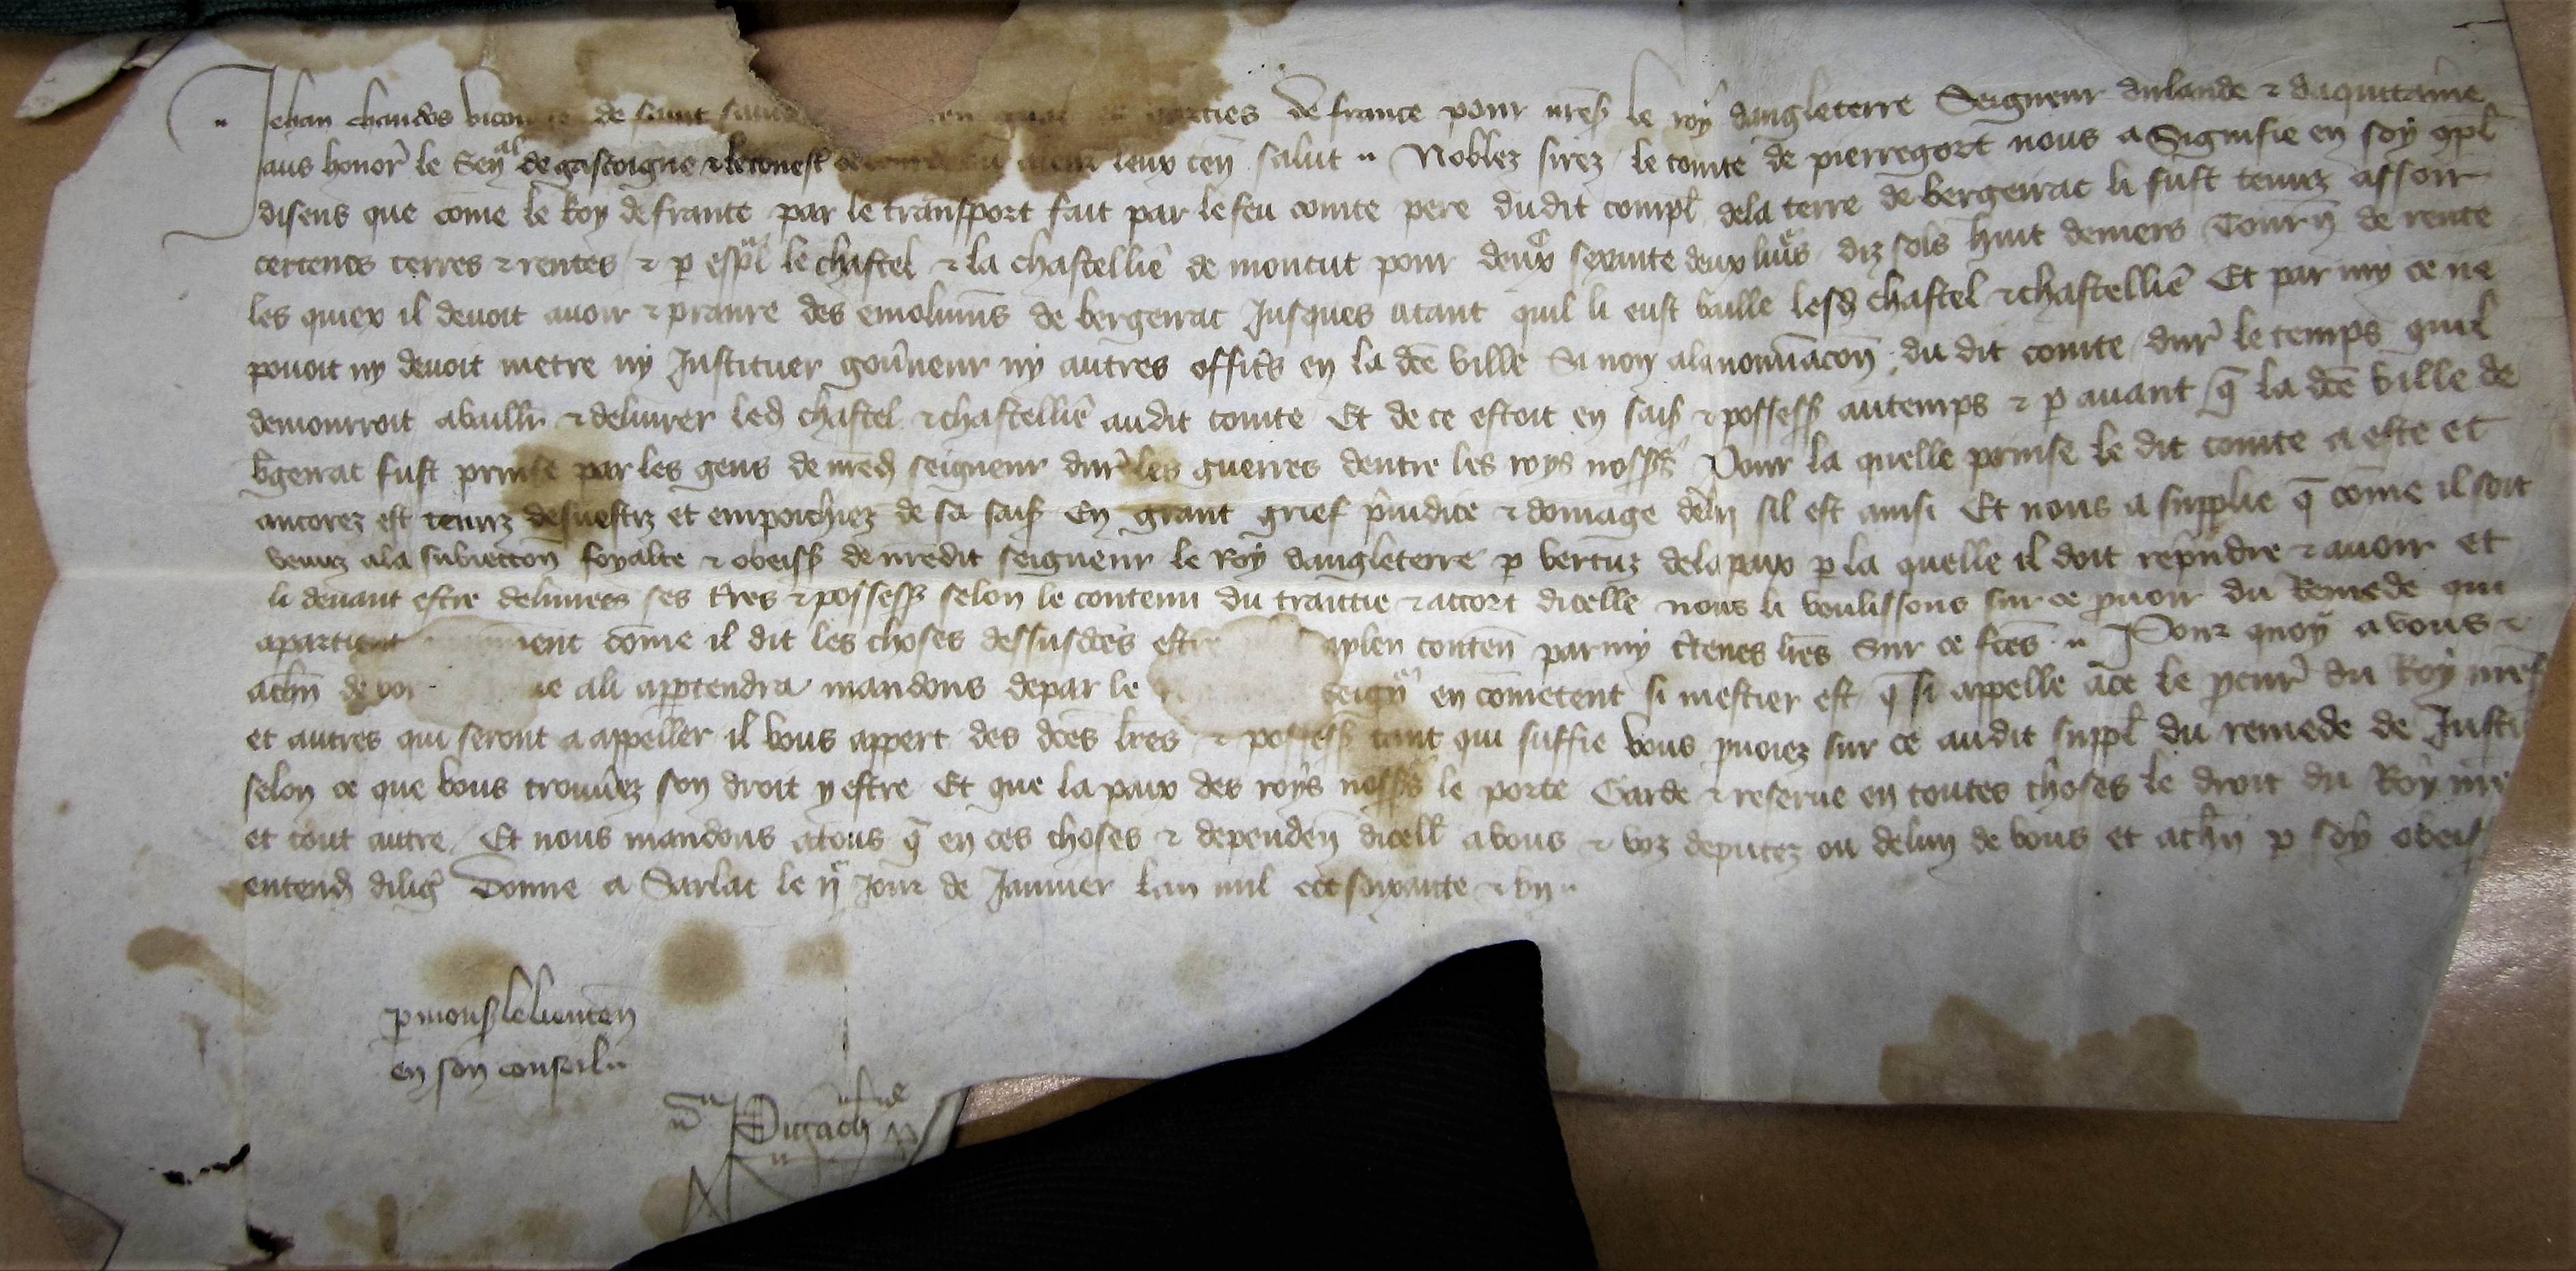 Jehan chandos de saint parties de france pour nres le roy dangleterre Seigneur dirlande & daquittaine
aus honor le Senal de gascoigne & leconest leux ten salut Noblez sirez le comte de pierregort nous a Signifie en soy cpl
disens que come le Roy de france par le transport fait par le feu comte pere dudit compl dela terre de bergerac li fust tenuz assoir
certenes terres & rentes & p espal le chastel & la chastellie de moncuc pour deux sexante deux livrs diz sols huit deniers Tourn de rente
les quiex il devoit avoir & pranre des emolumns de bergerac Jusques atant quil li eust baille lesd chastel & chastellie Et par my ce ne
povoit ny devoit metre ny Jnstituer gouvneur ny autres offics en la dce ville Si non ala nominacon du dit comte dur le temps quil
demourroit a baillr & delivrer led chastel & chastellie audit comte Et de ce estoit en sais & possess autemps & p avant q la dce ville de
bgerac fust prinse par les gens de nred seigneur dur les guerres dentre les roys nosss Pour la quelle prinse le dit comte a este et
ancorez est tenuz desvestz et empoichiez de sa sais En grant grief pjudice & domage dely sil est ainsi Et nous a supplie q come il soit
venuz ala subieccon foyalte & obeiss de nredit seigneur le Roy dangleterre p vertuz dela paix p la quelle il doit reprndre & avoir et
li devant estre delivrees ses tres & possess selon le contenu du traittie & accort dicelle nous li voulissons sur ce pvoir du Remede qui
apartient come il dit les choses dessusdces estre conten par my ctenes lres Sur ce fces Pour quoy a vous &
achn de ali apptendra mandons depar le Seignr en cometent si mestier est q si appelle ace le pcur du Roy nres
et autres qui seront a appeller il vous appert des dces lres & possess tant qui suffie vous pvoiez sur ce audit suppl du remede de Justi
selon ce que vous trouvez son droit y estre Et que la paix des roys nosss le porte Garde & reserve en toutes choses le droit du Roy nre
et tout autre Et nous mandons atous q en ces choses & dependen dicell a vous & voz deputez ou delun de vous et achn p soy obeis
entend dilig Donne a Sarlac le ij jour de Janvier lan mil ccc soixante & un
p mons le lieuten
en son conseil
Pigach